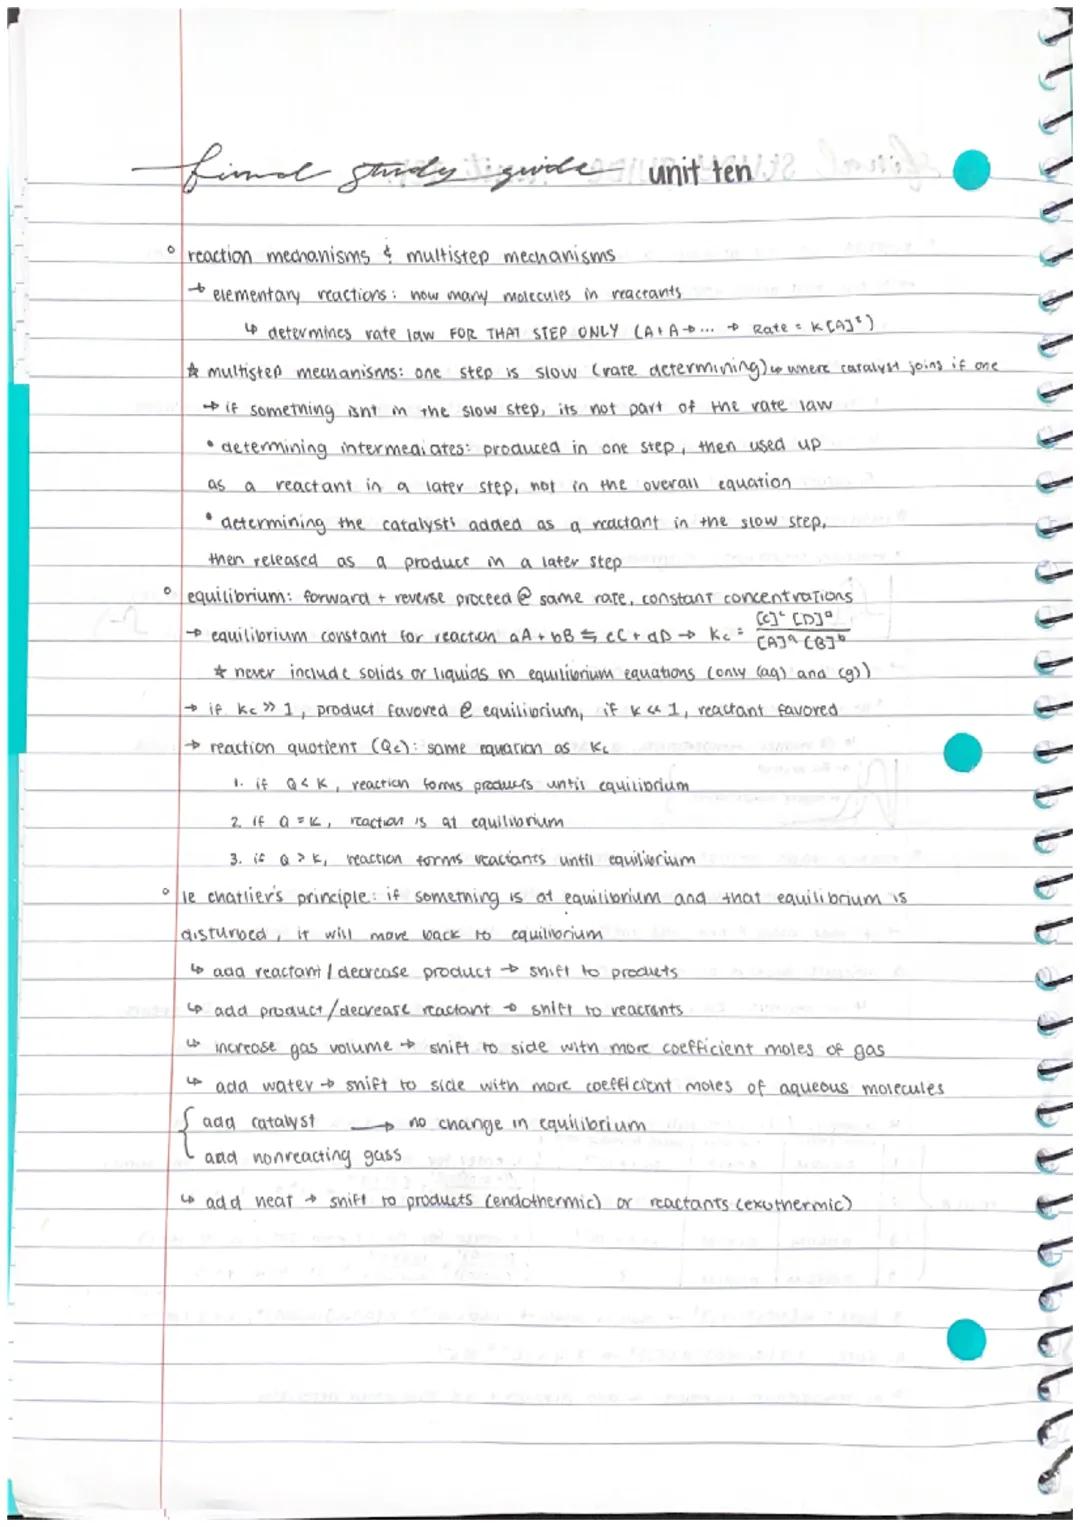 final study guide unit ten
° reaction mechanisms & multistep mechanisms
→ elementary reactions: how many molecules in reactants
↳ determines rate law FOR THAT STEP ONLY (A+A→... → Rate = K[A]²)
☆ multistep mechanisms: one step is slow (rate determining) ↳ where catalyst joins if one
→ if something isnt in the slow step, its not part of the rate law
• determining intermediates: produced in one step, then used up
as a reactant in a later step, not in the overall equation
• determining the catalyst: added as a reactant in the slow step,
then released as a product in a later step
° equilibrium: forward + reverse proceed @ same rate, constant concentrations
→ equilibrium constant for reaction aA + bB ⇆ cC + dD → Kc = [C]ᶜ [D]ᵈ / [A]ᵃ [B]ᵇ
☆ never include solids or liquids in equilibrium equations (only (aq) and (g))
→ if Kc >> 1, product favored @ equilibrium, if K << 1, reactant favored
→ reaction quotient (Qc): same equation as Kc
1. if Q < K, reaction forms products until equilibrium
2. if Q = K, reaction is at equilibrium
3. if Q > K, reaction forms reactants until equilibrium
° le chatlier's principle: if something is at equilibrium and that equilibrium is
disturbed, it will move back to equilibrium
↳ add reactant / decrease product → shift to products
↳ add product / decrease reactant → shift to reactants
↳ increase gas volume → shift to side with more coefficient moles of gas
↳ add water → shift to side with more coefficient moles of aqueous molecules
{ add catalyst → no change in equilibrium
add nonreacting gass
↳ add heat → shift to products (endothermic) or reactants (exothermic)